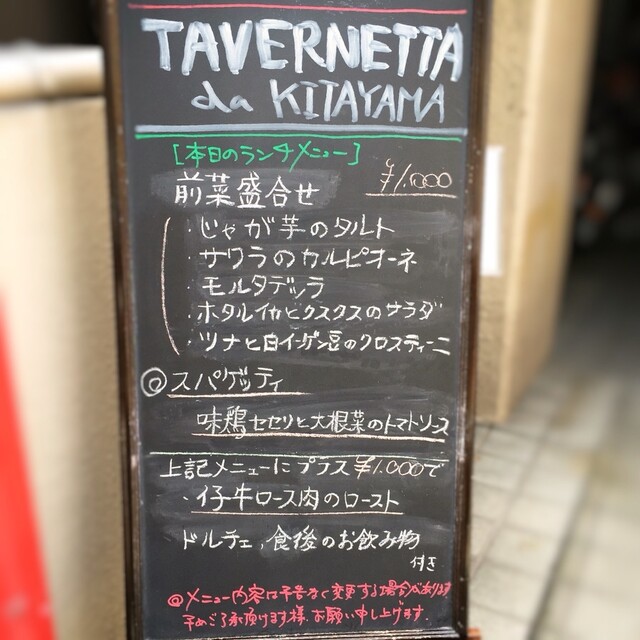 TAVERNETTA
da KITAYAMA
[本日のランチメニュー]
前菜盛合せ ¥1.000
・じゃが芋のタルト
・サワラのカルピオーネ
・モルタデッラ
・ホタルイカとクスクスのサラダ
・ツナと白インゲン豆のクロスティーニ
◎スパゲッティ
味鶏セセリと大根菜のトマトソース
上記メニューにプラス¥1.000で
・仔牛ロース肉のロースト
ドルチェ、食後のお飲み物
付き
◎メニュー内容は予告なく変更する場合があります
予めご了承頂けます様、お願い申し上げます。